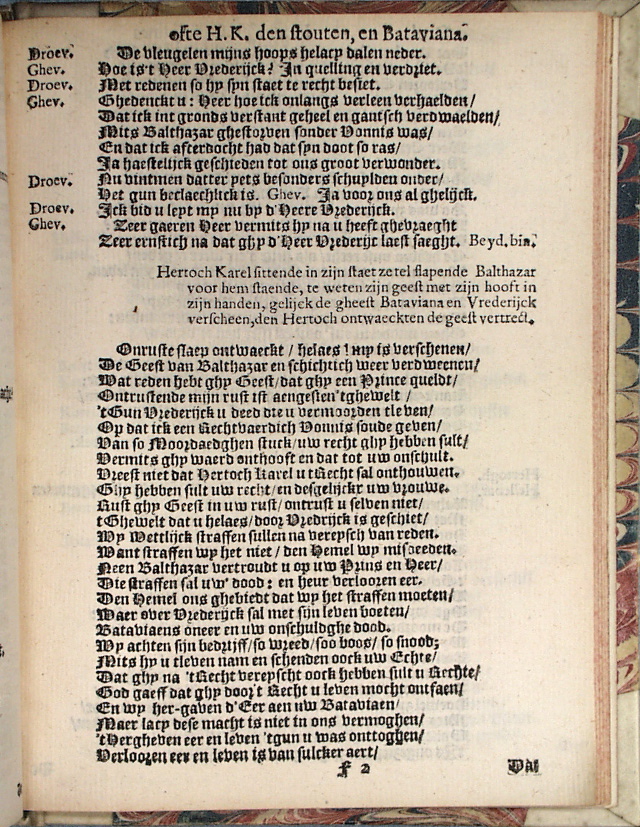 ofte H. K. den stouten, en Bataviana.
Droev. De vleugelen mijns hoops helacy dalen neder.
Ghev. Hoe is't Heer Vrederijck? In quelling en verdriet.
Droev. Met redenen so hy syn staet te recht besiet.
Ghev. Ghedenckt u: Heer hoe ick onlangs verleen verhaelden/
Dat ick int gronds verstant geheel en gantsch verdwaelden/
Mits Balthazar ghestorven sonder Vonnis was/
En dat ick afterdocht had dat syn doot so ras/
Ja haestelijck geschieden tot ons groot verwonder.
Droev. Nu vintmen datter yets besonders schuylden onder/
Het gun beclaechlick is. Ghev. Ja voor ons al ghelijck.
Droev. Ick bid u leyt my nu by d'Heere Vrederijck.
Ghev. Zeer gaeren Heer vermits hy na u heeft ghevraeght
Zeer ernstich na dat ghy d'Heer Vrederijc laest saeght. Beyd. bin.
Hertoch Karel sittende in zijn staet zetel slapende Balthazar
voor hem staende, te weten zijn geest met zijn hooft in
zijn handen, gelijck de gheest Bataviana en Vrederijck
verscheen, den Hertoch ontwaeckten de geest vertrect.
Onruste slaep ontwaeckt / helaes! my is verschenen/
De Geest van Balthazar en schichtich weer verdweenen/
Wat reden hebt ghy Geest/dat ghy een Prince queldt/
Ontrustende mijn rust ist aengesten 'tghewelt /
'tGun Vrederijck u deed die u vermoorden tleven/
Op dat ick een Rechtvaerdich Vonnis soude geven/
Van so Moordaedghen stuck/uw recht ghy hebben sult/
Vermits ghy waerd onthooft en dat tot uw onschult.
Vreest niet dat Hertoch Karel u tRecht sal onthouwen.
Ghy hebben sult uw recht/en desgelijckr uw vrouwe.
Rust ghy Geest in uw rust/ontrust u selven niet/
tGhewelt dat u helaes/door Vredrijck is geschiet/
Wy Wettlijck straffen sullen na vereysch van reden.
Want straffen wy het niet / den Hemel wy misdeeden.
Neen Balthazar vertroudt u op uw Prins en Heer/
Die straffen sal uw' dood: en heur verlooren eer.
Den Hemel ons ghebiedt dat wy het straffen moeten/
Waer over Vrederijck sal met sijn leven boeten/
Bataviaens oneer en uw onschuldghe dood.
Wy achten sijn bedrijff/so wreed/soo boos/ so snood;
Mits hy u tleven nam en schenden oock uw Echte/
Dat ghy na 'tRecht vereyscht oock hebben sult u Rechte/
God gaeff dat ghy door't Recht u leven mocht ontfaen/
En wy her-gaven d'Eer aen uw Bataviaen/
Maer lacy dese macht is niet in ons vermoghen/
'tHergheven eer en leven 'tgun u was onttoghen/
Verloozen eer en leven is van sulcker aert/
f 2 Dat